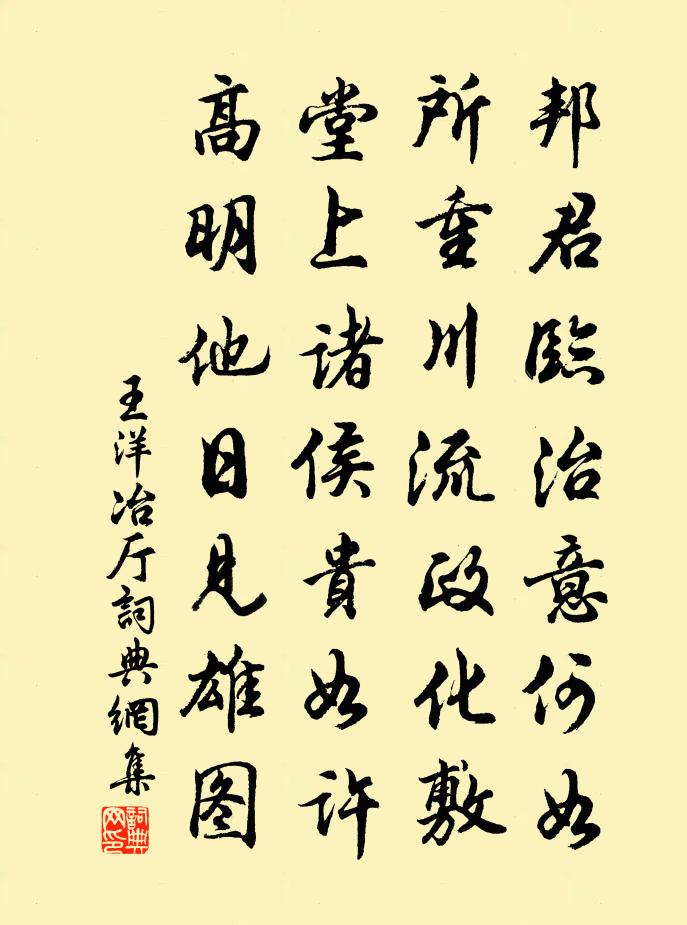 邦君臨治意何如
所重川流政化敷
堂上諸侯貴如許
高明他日見雄图
王洋冶厅詞典網集
詞典网印